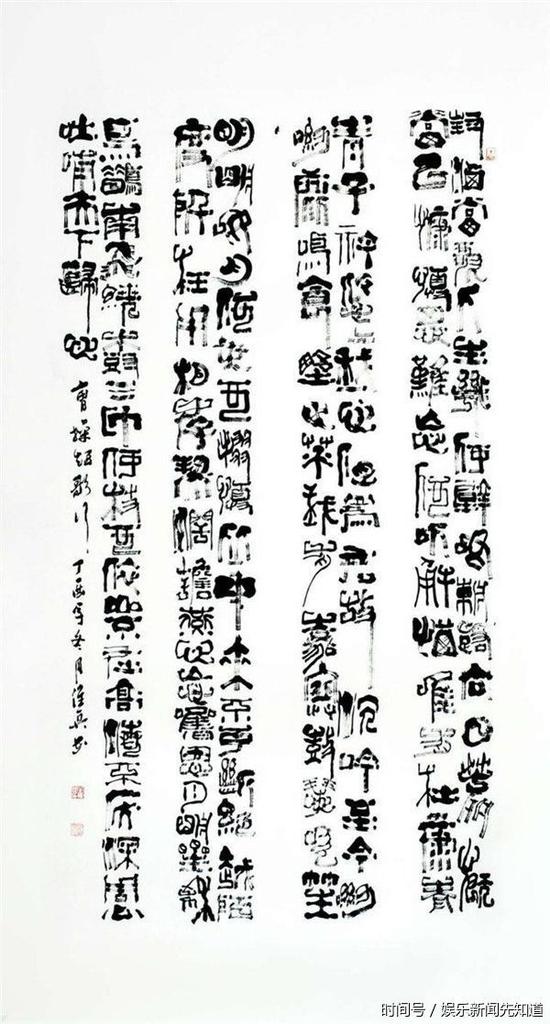 對酒當歌人生幾何譬如朝露去日苦多慨
當以慷憂思難忘何以解憂唯有杜康青
青子衿悠悠我心但為君故沉吟至今呦
呦鹿鳴食野之苹我有嘉賓鼓瑟吹笙
明明如月何時可掇憂從中來不可斷絕越陌
度阡枉用相存契闊談讌心念舊恩月明星稀
烏鵲南飛繞樹三匝何枝可依山不厭高海不厭深周公
吐哺天下歸心 曹操短歌行 丁酉年冬月
时间号 / 娱乐新闻先知道